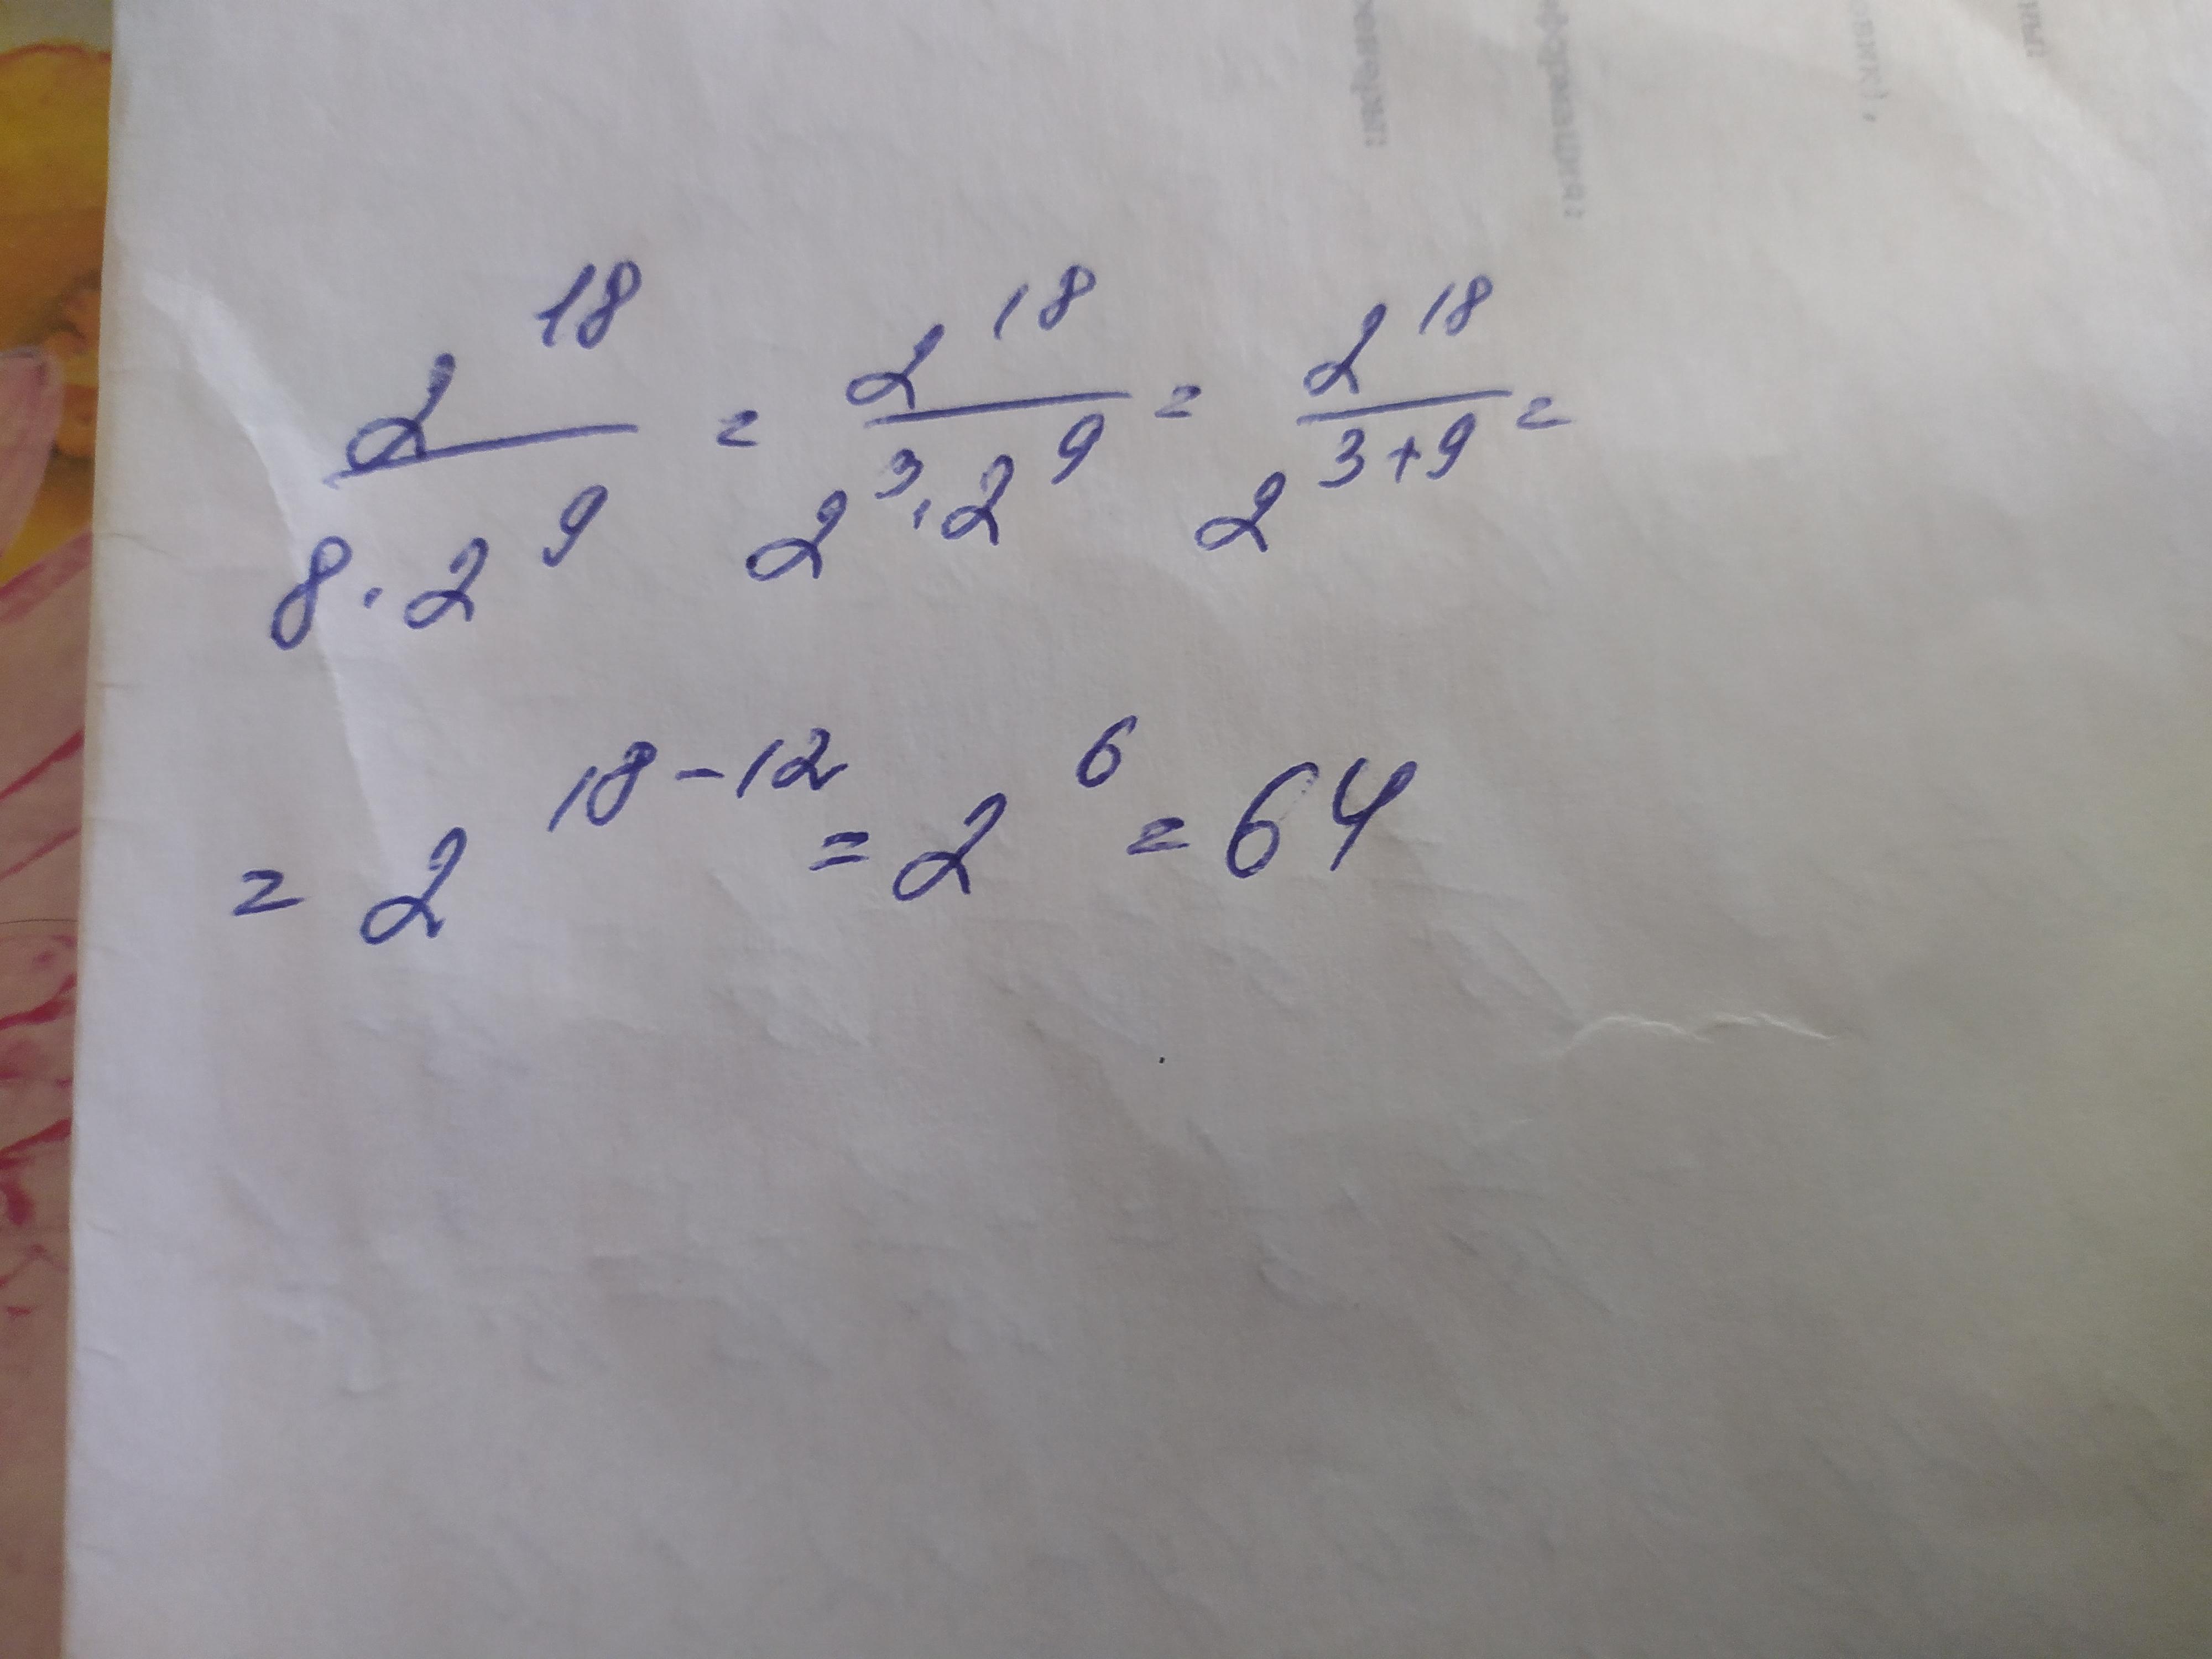 2^18/(8·2^9) = 2^18/(2^3·2^9) = 2^18/2^(3+9) =
= 2^(18-12) = 2^6 = 64